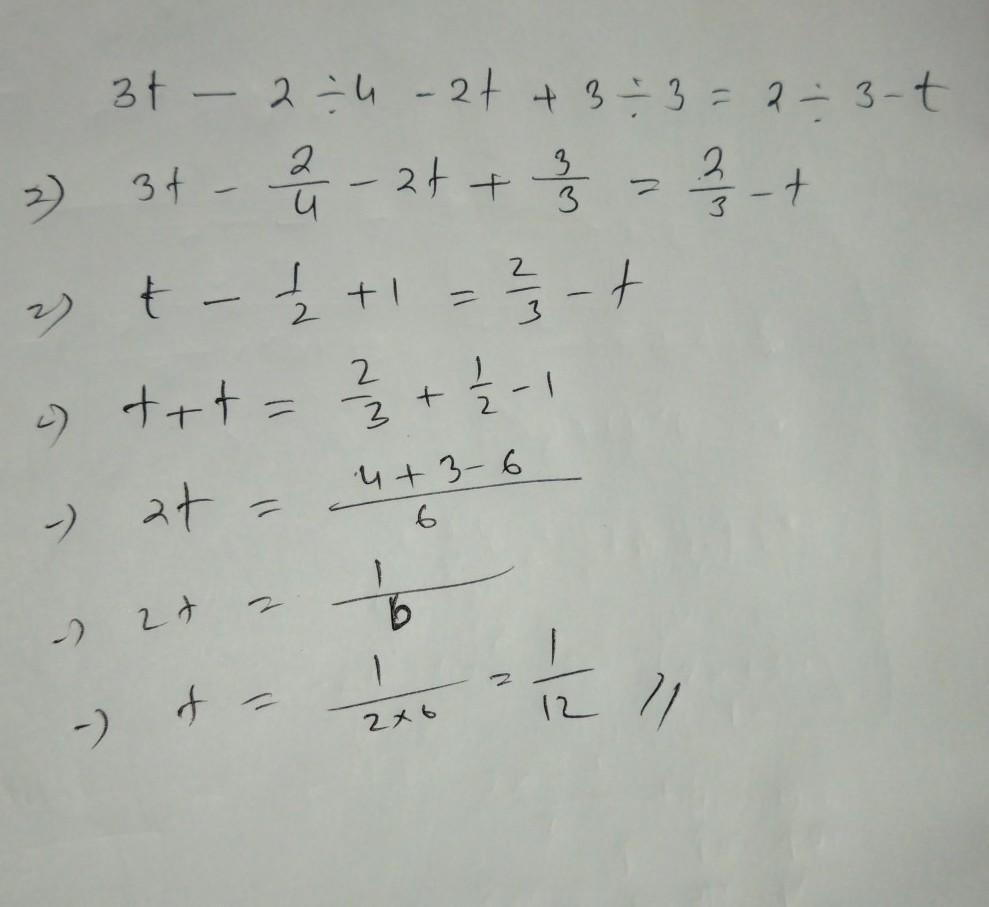 3t - 2 ÷ 4 - 2t + 3 ÷ 3 = 2 ÷ 3 - t
⇒) 3t - 2/4 - 2t + 3/3 = 2/3 - t
⇒) t - 1/2 + 1 = 2/3 - t
⇒) t + t = 2/3 + 1/2 - 1
⇒) 2t = (4 + 3 - 6)/6
⇒) 2t = 1/6
⇒) t = 1/(2×6) = 1/12 //